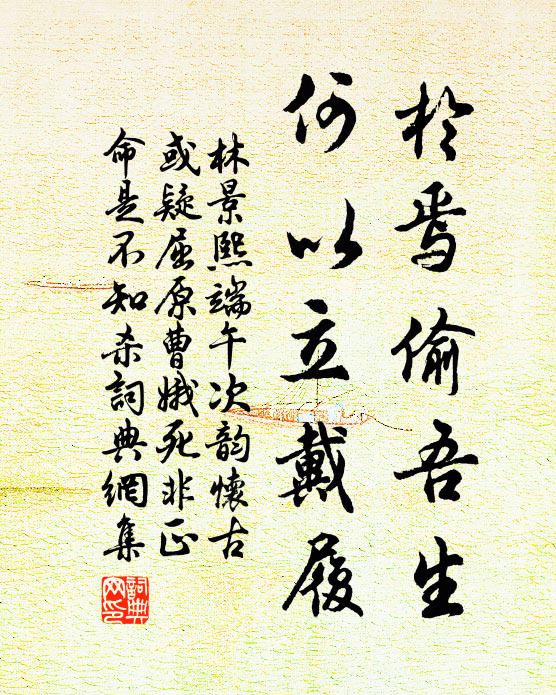 於焉偷吾生
何以立戴履
林景熙端午次韵懷古
或疑屈原曹娥死非正
命是不知杀詞典網集
詞典網印